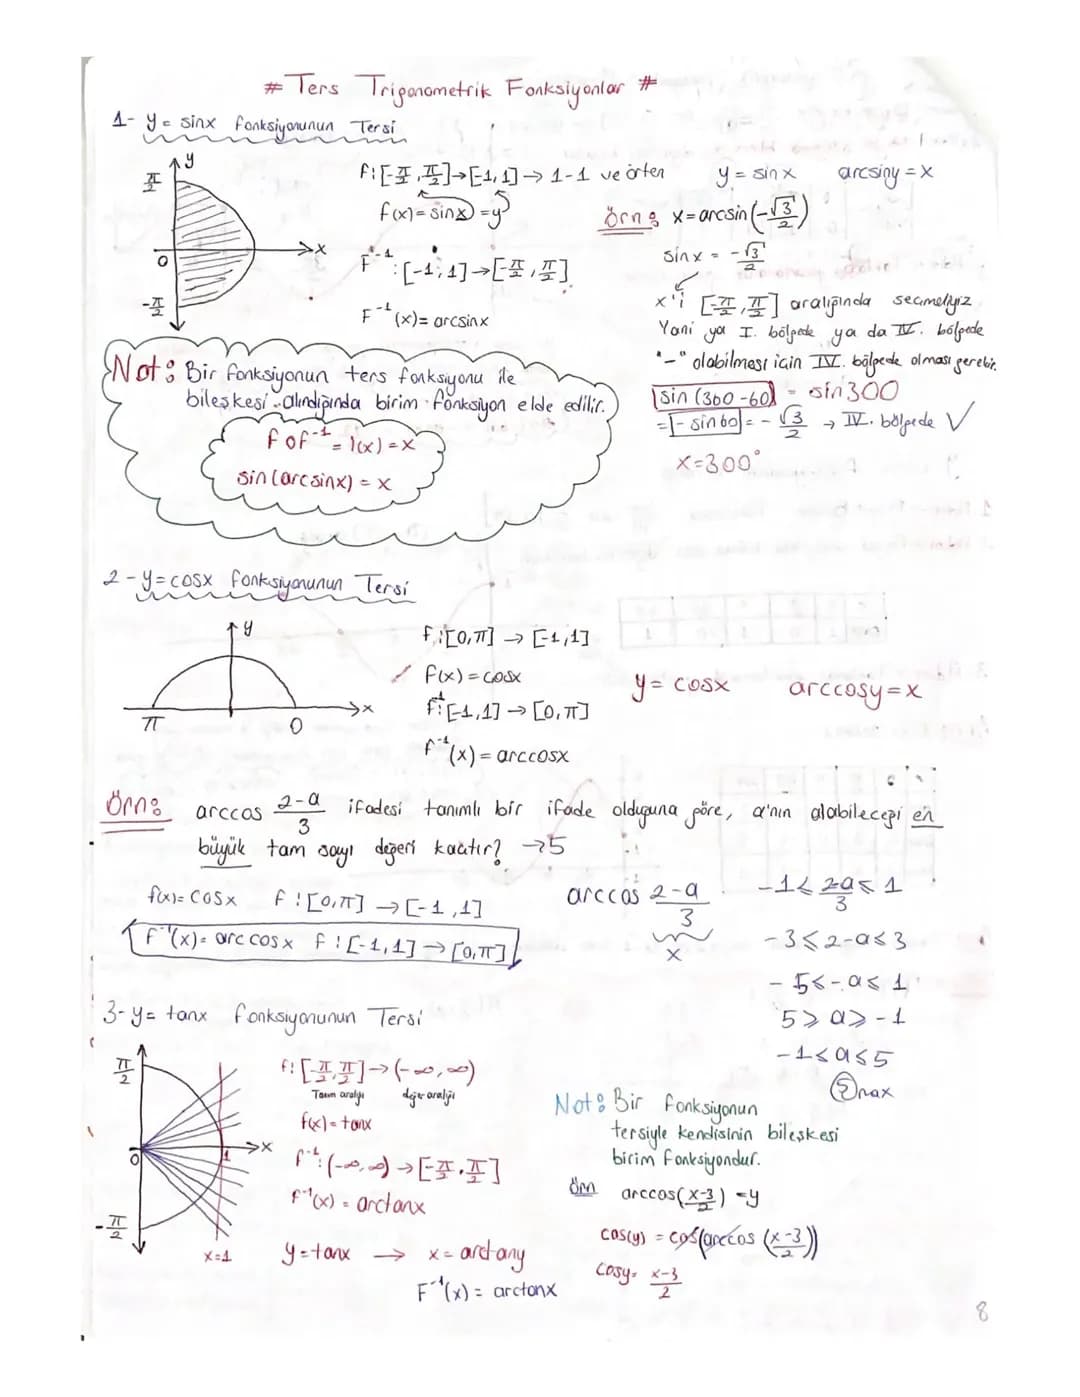 # Ters Trigonometrik Fonksiyonlar #
1- y = sinx fonksiyonunun Tersi
y
π/2
0
x
-π/2
f: [-π/2, π/2] → [-1, 1] → 1-1 ve örten
f(x) = sinx = y
f⁻¹: [-1, 1] → [-π/2, π/2]
f⁻¹(x) = arcsinx
y = sinx arcsiny = x
Örn: x = arcsin(-√3/2)
sinx = -√3/2
x'i [-π/2, π/2] aralığında seçmeliyiz
Yani ya I. bölgede ya da IV. bölgede
"-" olabilmesi için IV. bölgede olması gerekir.
sin(360-60) = sin300
= -sin60 = -√3/2 → IV. bölgede ✓
x = 300°
Not: Bir fonksiyonun ters fonksiyonu ile
bileşkesi alındığında birim fonksiyon elde edilir.
fof⁻¹ = I(x) = x
sin(arcsinx) = x
2 - y = cosx fonksiyonunun Tersi
y
π
0
x
f: [0, π] → [-1, 1]
f(x) = cosx
f⁻¹: [-1, 1] → [0, π]
f⁻¹(x) = arccosx
y = cosx arccosy = x
Örn: arccos 2-a/3 ifadesi tanımlı bir ifade olduğuna göre, a'nın alabileceği en
büyük tam sayı değeri kaçtır? → 5
f(x) = cosx f: [0, π] → [-1, 1]
f⁻¹(x) = arccosx f: [-1, 1] → [0, π]
arccos 2-a/3
x
-1 ≤ 2-a/3 ≤ 1
-3 ≤ 2-a ≤ 3
-5 ≤ -a ≤ 1
5 ≥ a ≥ -1
-1 ≤ a ≤ 5
5 max
3- y = tanx fonksiyonunun Tersi
π/2
0
1
x
-π/2
x=1
f: [-π/2, π/2] → (-∞, ∞)
Tanım aralığı değer aralığı
f(x) = tanx
f⁻¹: (-∞, ∞) → [-π/2, π/2]
f⁻¹(x) = arctanx
y = tanx → x = arctany
f⁻¹(x) = arctanx
Not: Bir fonksiyonun
tersiyle kendisinin bileşkesi
birim fonksiyondur.
Örn arccos(x-3/2) = y
cos(y) = cos(arccos(x-3/2))
cosy = x-3/2
8